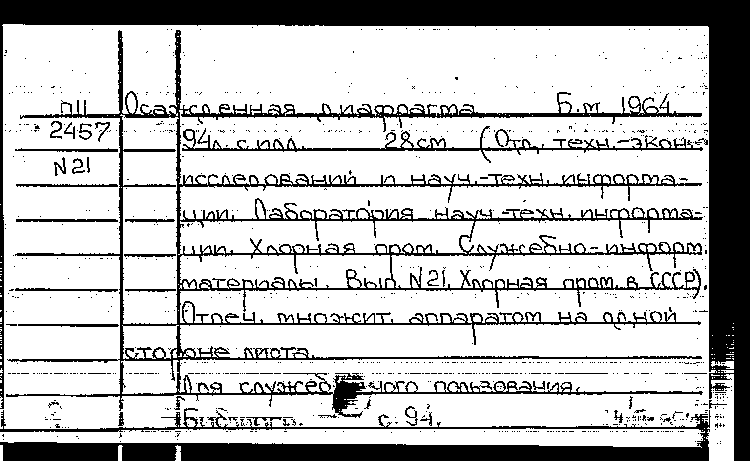 П11 Осажденная диафрагма Б.м., 1964.
2457 94л. с илл. 28см. (Отд. техн.-экон.
N21 исследований и науч.-техн. информа-
ции. Лаборатория науч.-техн. информа-
ции. Хлорная пром. Служебно-информ.
материалы. Вып. N21. Хлорная пром. в СССР).
Отпеч. множит. аппаратом на одной
стороне листа.
Для служебного пользования.
Библиогр. с. 94.